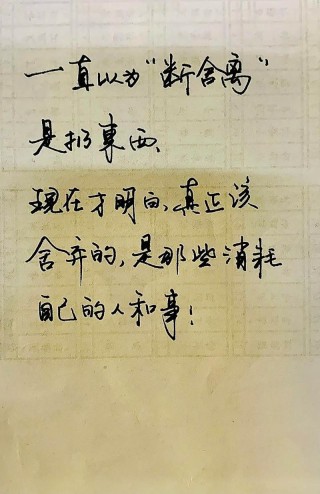 一直以为“断舍离”
是扔東西、
现在才明白,真正该
舍弃的,是那些消耗
自己的人和事!